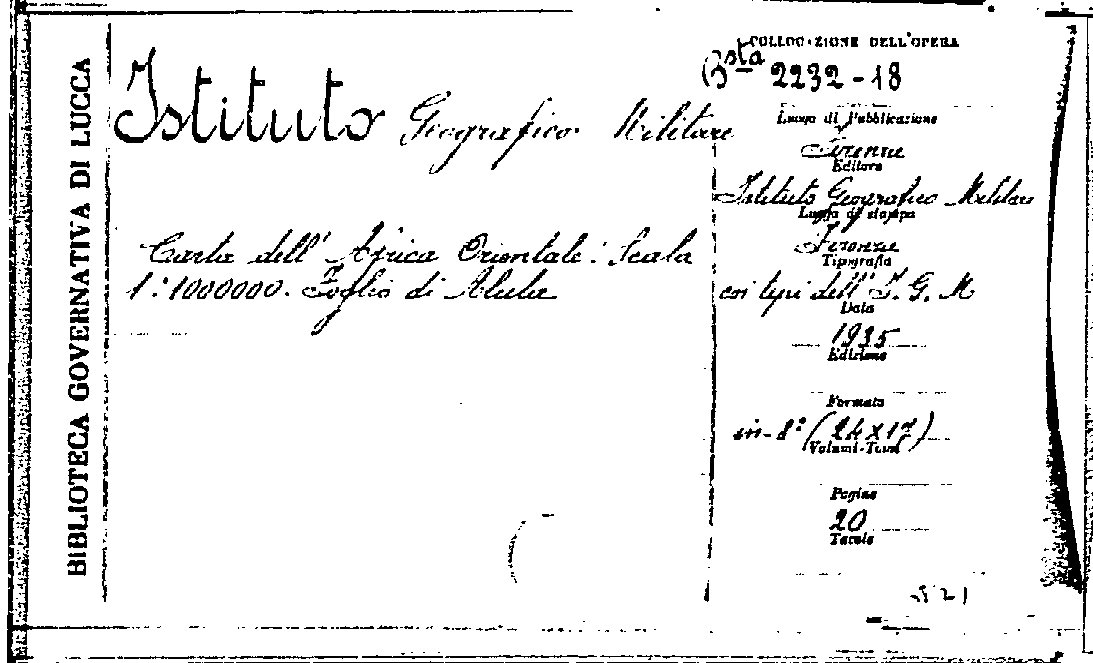 BIBLIOTECA GOVERNATIVA DI LUCCA
Istituto Geografico Militare
Carta dell' Africa Orientale: Scala
1:1000000. Foglio di Alula
COLLOCAZIONE DELL'OPERA
Bsta 2232-18
Luogo di Pubblicazione
Firenze
Editore
Istituto Geografico Militare
Luogo di stampa
Firenze
Tipografia
coi tipi dell' I. G. M
Data
1935
Edizione
Formato
in-8º (24x17)
Volumi-Tomi
Pagine
20
Tavole